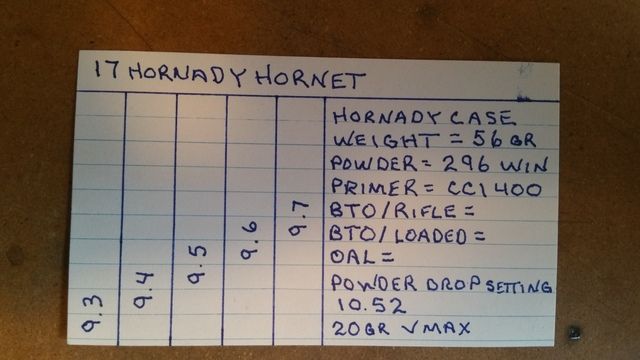 17 HORNADY HORNET
HORNADY CASE
WEIGHT = 56 GR
POWDER = 296 WIN
PRIMER = CCI 400
BTO/RIFLE =
BTO/LOADED =
OAL =
POWDER DROP SETTING
10.52
20GR VMAX
9.3
9.4
9.5
9.6
9.7